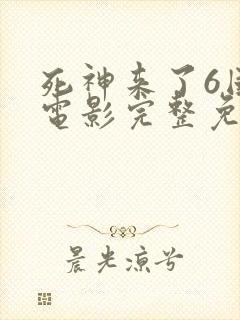 死神来了6
電影完整免
晨光凉兮